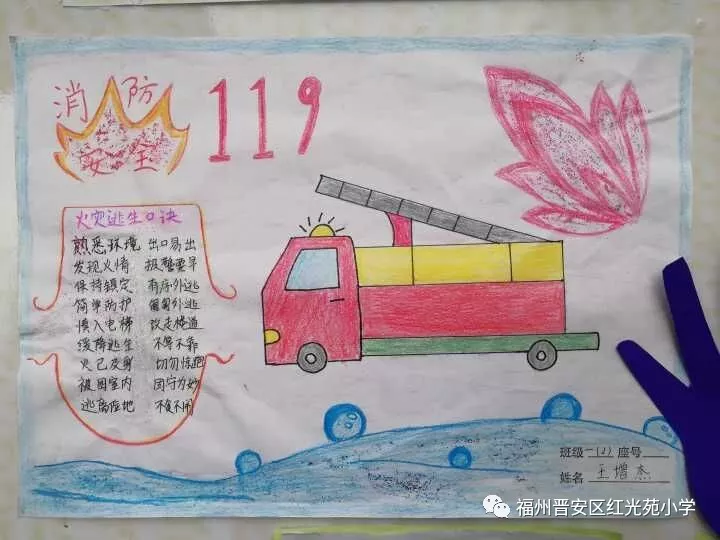 消防
安全
119
火灾逃生口诀
熟悉环境 出口易出
发现火情 报警要早
保持镇定 有序外逃
简单防护 匍匐外逃
慎入电梯 改走楼道
缓降逃生 不等不靠
火已及身 切勿惊跑
被困室内 固守为妙
逃离险地 不复不闹
班级 一(2) 座号
姓名 王增杰
福州晋安区红光苑小学